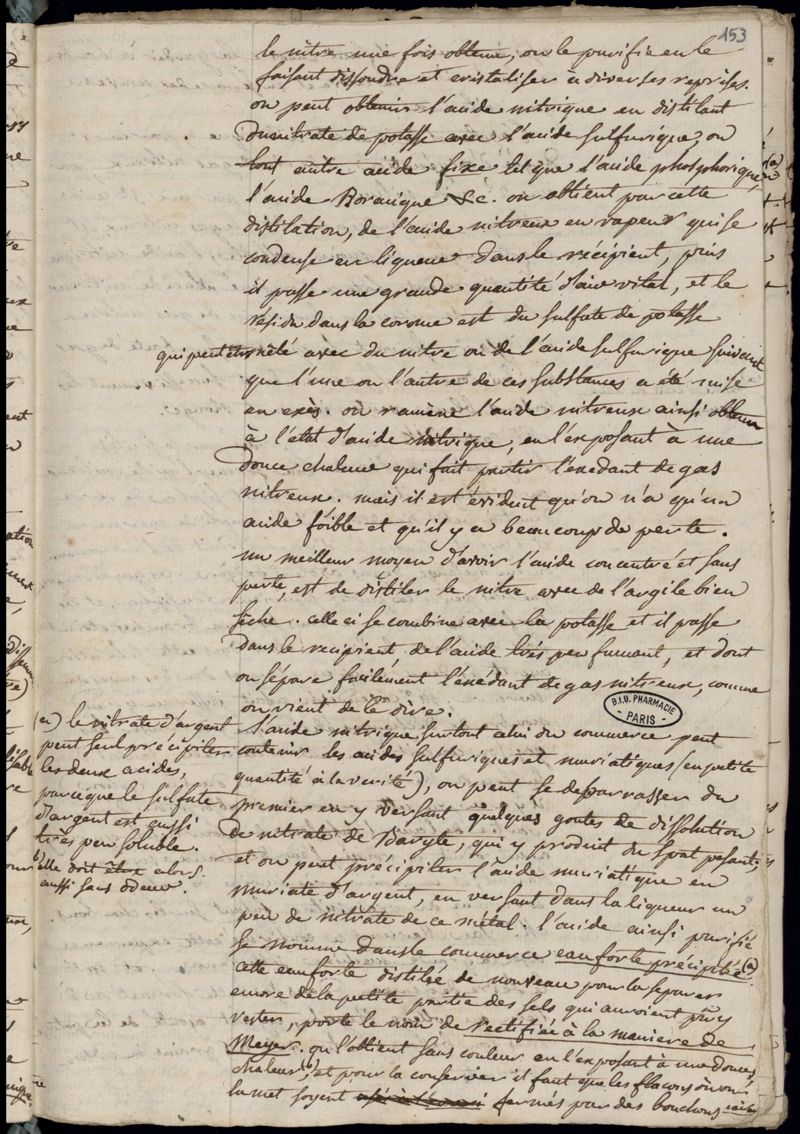 153
le nitre une fois obtenu, on le purifie en le
faisant dissoudre et cristaliser à diverses reprises.
on peut obtenir l'acide nitrique en distilant
du nitrate de potasse avec l'acide sulfurique, ou
tout autre acide fixe tel que l'acide phosphorique,
l'acide Boracique &c. on obtient par cette
distilation, de l'acide nitreux en vapeur qui se
condense en liqueur dans le récipient, puis
il passe une grande quantité d'air vital, et le
résidu dans la cornue est du sulfate de potasse
qui peut être mêlé avec du nitre ou de l'acide sulfurique suivant
que l'une ou l'autre de ces substances a été mise
en excès. on ramène l'acide nitreux ainsi obtenu
à l'état d'acide nitrique, en l'exposant à une
douce chaleur qui fait partir l'excédant de gas
nitreux. mais il est évident qu'on n'a qu'un
acide foible et qu'il y a beaucoup de perte.
un meilleur moyen d'avoir l'acide concentré et sans
perte, est de distiler le nitre avec de l'argile bien
sèche. celle ci se combine avec la potasse et il passe
dans le recipient de l'acide très peu fumant, et dont
on sépare facilement l'excédant de gas nitreux, comme
on vient de le dire.
B.I.U. PHARMACIE
- PARIS -
l'acide nitrique surtout celui du commerce peut
contenir les acides sulfuriques et muriatiques (en petite
quantité à la verité), on peut se debarrasser du
premier en y versant quelques goutes de dissolution
de nitrate de Baryte, qui y produit du spat pesant,
et on peut précipiter l'acide muriatique en
muriate d'argent, en versant dans la liqueur un
peu de nitrate de ce métal. l'acide ainsi purifié
se nomme dans le commerce eau forte précipitée (a)
cette eau forte distilée de nouveau pour la séparer
encore de la petite partie des sels qui auroient pu y
rester, porte le nom de rectifiée à la maniere de
Meyer. on l'obtient sans couleur en l'exposant à une douce
chaleur, (b) et pour la conserver il faut que les flacons où on
la met soyent fermés par des bouchons
(a) le nitrate d'argent
peut seul précipiter
les deux acides,
parceque le sulfate
d'argent est aussi
très peu soluble.
(b) elle doit être alors
aussi sans odeur.